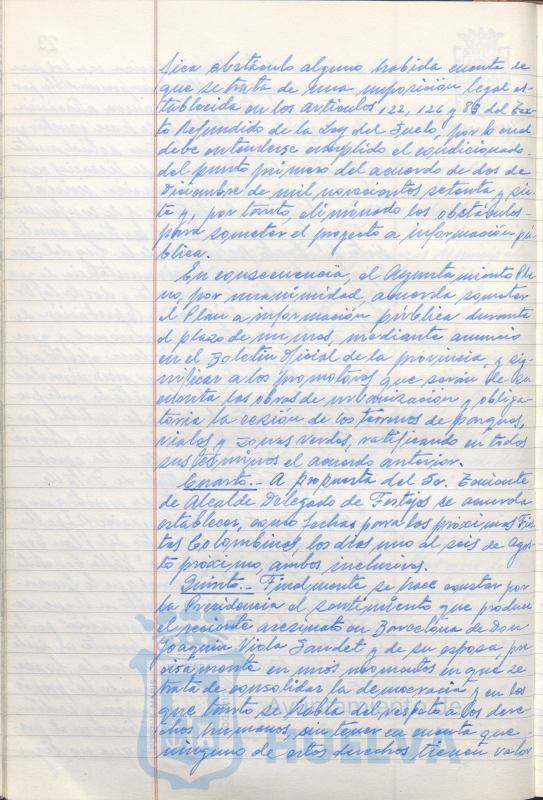 fica obstáculo alguno habida cuenta de
que se trata de una imposición legal es-
tablecida en los artículos 122, 126 y 86 del Tex-
to Refundido de la Ley del Suelo, por lo cual
debe entenderse cumplido el condicionado
del punto primero del acuerdo de dos de
Diciembre de mil novecientos setenta y sie-
te y, por tanto, eliminado los obstáculos
para someter el proyecto a información pú-
blica.
En consecuencia, el Ayuntamiento Ple-
no, por unanimidad, acuerda someter
el Plan a información pública durante
el plazo de un mes, mediante anuncio
en el Boletín Oficial de la provincia, y sig-
nificar a los promotores que serán de su
cuenta las obras de urbanización y obliga-
toria la cesión de los terrenos de parques,
viales y zonas verdes, ratificando en todos
sus términos el acuerdo anterior.
Cuarto.- A propuesta del Sr. Teniente
de Alcalde Delegado de Festejos se acuerda
establecer, como fechas para las próximas Fies-
tas Colombinas, los días uno al seis de Agos-
to próximo, ambos inclusives.
Quinto.- Finalmente se hace constar por
la Presidencia el sentimiento que produce
el reciente asesinato en Barcelona de Don
Joaquín Viola Saudet y de su esposa, pre-
cisamente en unos momentos en que se
trata de consolidar la democracia y en los
que tanto se habla del respeto a los dere-
chos humanos, sin tener en cuenta que
ninguno de estos derechos tienen valor
Ayuntamiento de
HUELVA